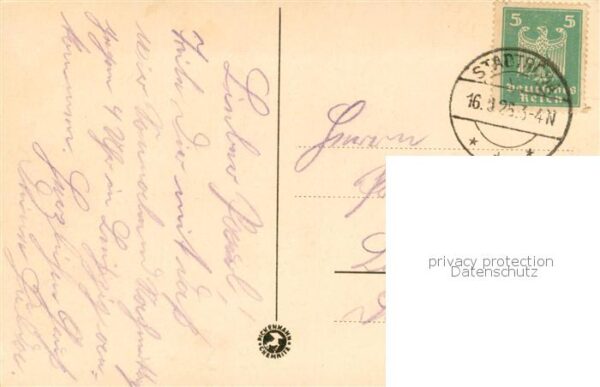 Lieber Paul!
Teile Dir mit daß
wir Sonnabend Nachmittag
gegen 4 Uhr in Leipzig an-
kommen. Herzlichen Gruß
Herrn
5 5
Deutsches
Reich
STADTRODA
16.9.26.3-4N
PICKENHAHN
CHEMNITZ
privacy protection
Datenschutz